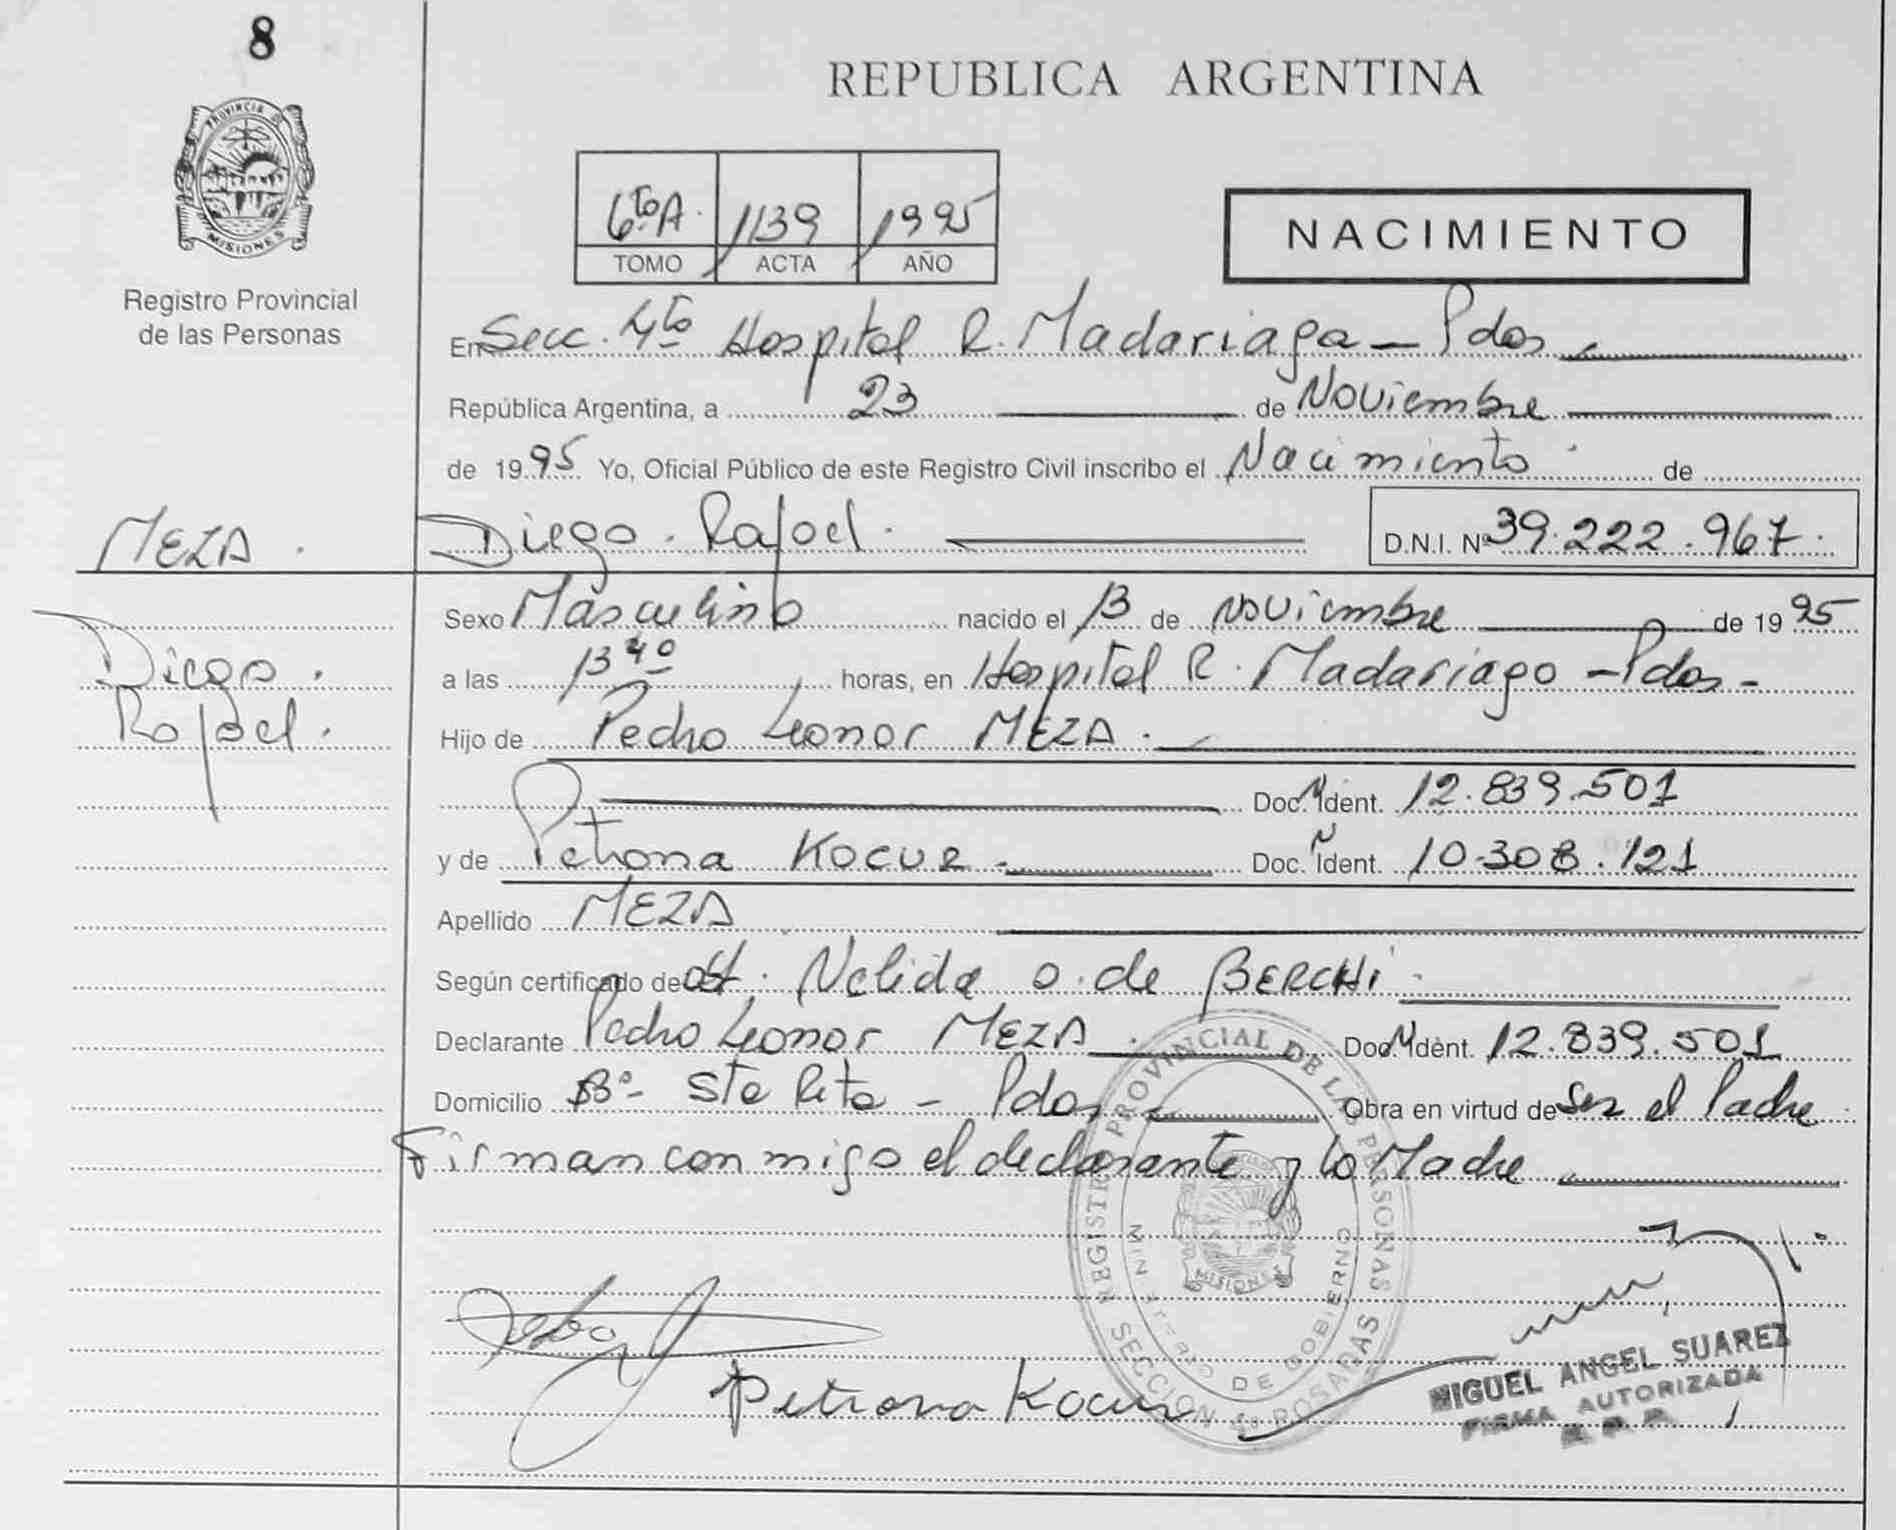 8
PROVINCIA DE
MISIONES
Registro Provincial
de las Personas
REPUBLICA ARGENTINA
6to A. 1139 1995
TOMO ACTA AÑO
NACIMIENTO
En Secc. 4to Hospital R. Madariaga - Pdas
República Argentina, a 23 de Noviembre
de 1995 Yo, Oficial Público de este Registro Civil inscribo el Nacimiento de
MEZA. Diego. Rafael. D.N.I. Nº 39.222.967.
Sexo Masculino nacido el 13 de noviembre de 1995
Diego. a las 13 40 horas, en Hospital R. Madariaga - Pdas -
Rafael. Hijo de Pedro Leonor MEZA.
Doc. Ident. 12.839.501
y de Petrona KOCUR - Doc. Ident. 10.308.121
Apellido MEZA
Según certificado de Nelida O. de BERCHI
Declarante Pedro Leonor MEZA. Doc. Ident. 12.839.501
Domicilio Bº - Sta Rita - Pdas Obra en virtud de ser el Padre
Firman conmigo el declarante y la Madre
REGISTRO PROVINCIAL DE LAS PERSONAS
MINISTERIO DE GOBIERNO
MISIONES
SECCION 4ta POSADAS
Petrona Kocur
MIGUEL ANGEL SUAREZ
FIRMA AUTORIZADA
R. P. P.